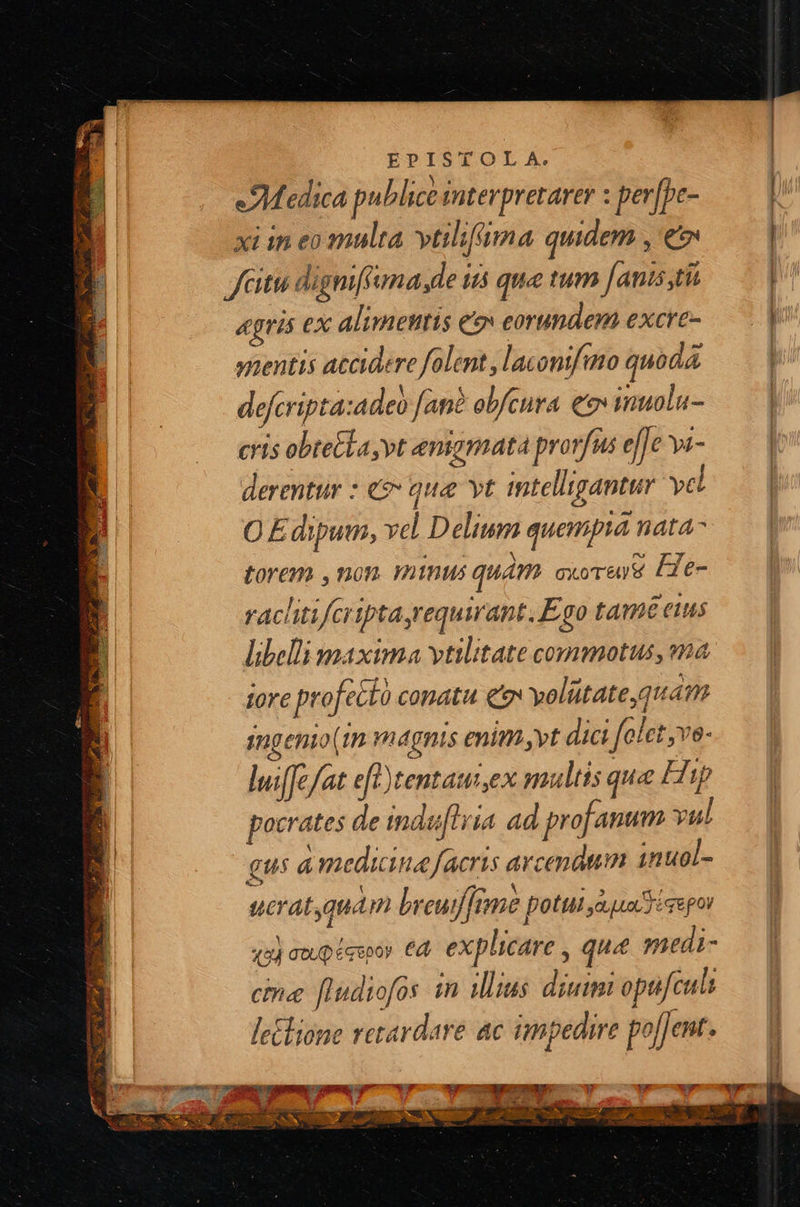 EPISTOLA.
Medica publicè interpretarer : perſpe-
xi in eo multa vtiliſsima quidem , &
ſcitu digniſsima,de iis quæ tum ſanis,tũ
ægris ex alimentis & eorundem excre-
mentis accidere ſolent , laconiſmo quodã
deſcripta:adeò ſanè obſcura & inuolu-
cris obtecta,vt ænigmata prorſus eſſe vi-
derentur : & quæ vt intelligantur vel
OEdipum, vel Delium quempiã nata-
torem , non minus quàm σκοτεινȣ͂ He-
racliti ſcripta,requirant. Ego tamẽ eius
libelli maxima vtilitate commotus, ma
iore profectò conatu & volũtate,quàm
ingenio(in magnis enim,vt dici ſolet,vo-
luiſſe ſat eſt)tentaui,ex multis quæ Hip
pocrates de induſtria ad profanum vul
gus à medicinæ ſacris arcendum inuol-
uerat,quàm breuiſſimè potui,ἀμαθέςερον
καὶ σαφέςερον ea explicare , quæ medi-
cinæ ſtudioſos in illius diuini opuſculi
lectione retardare ac impedire poſſent.